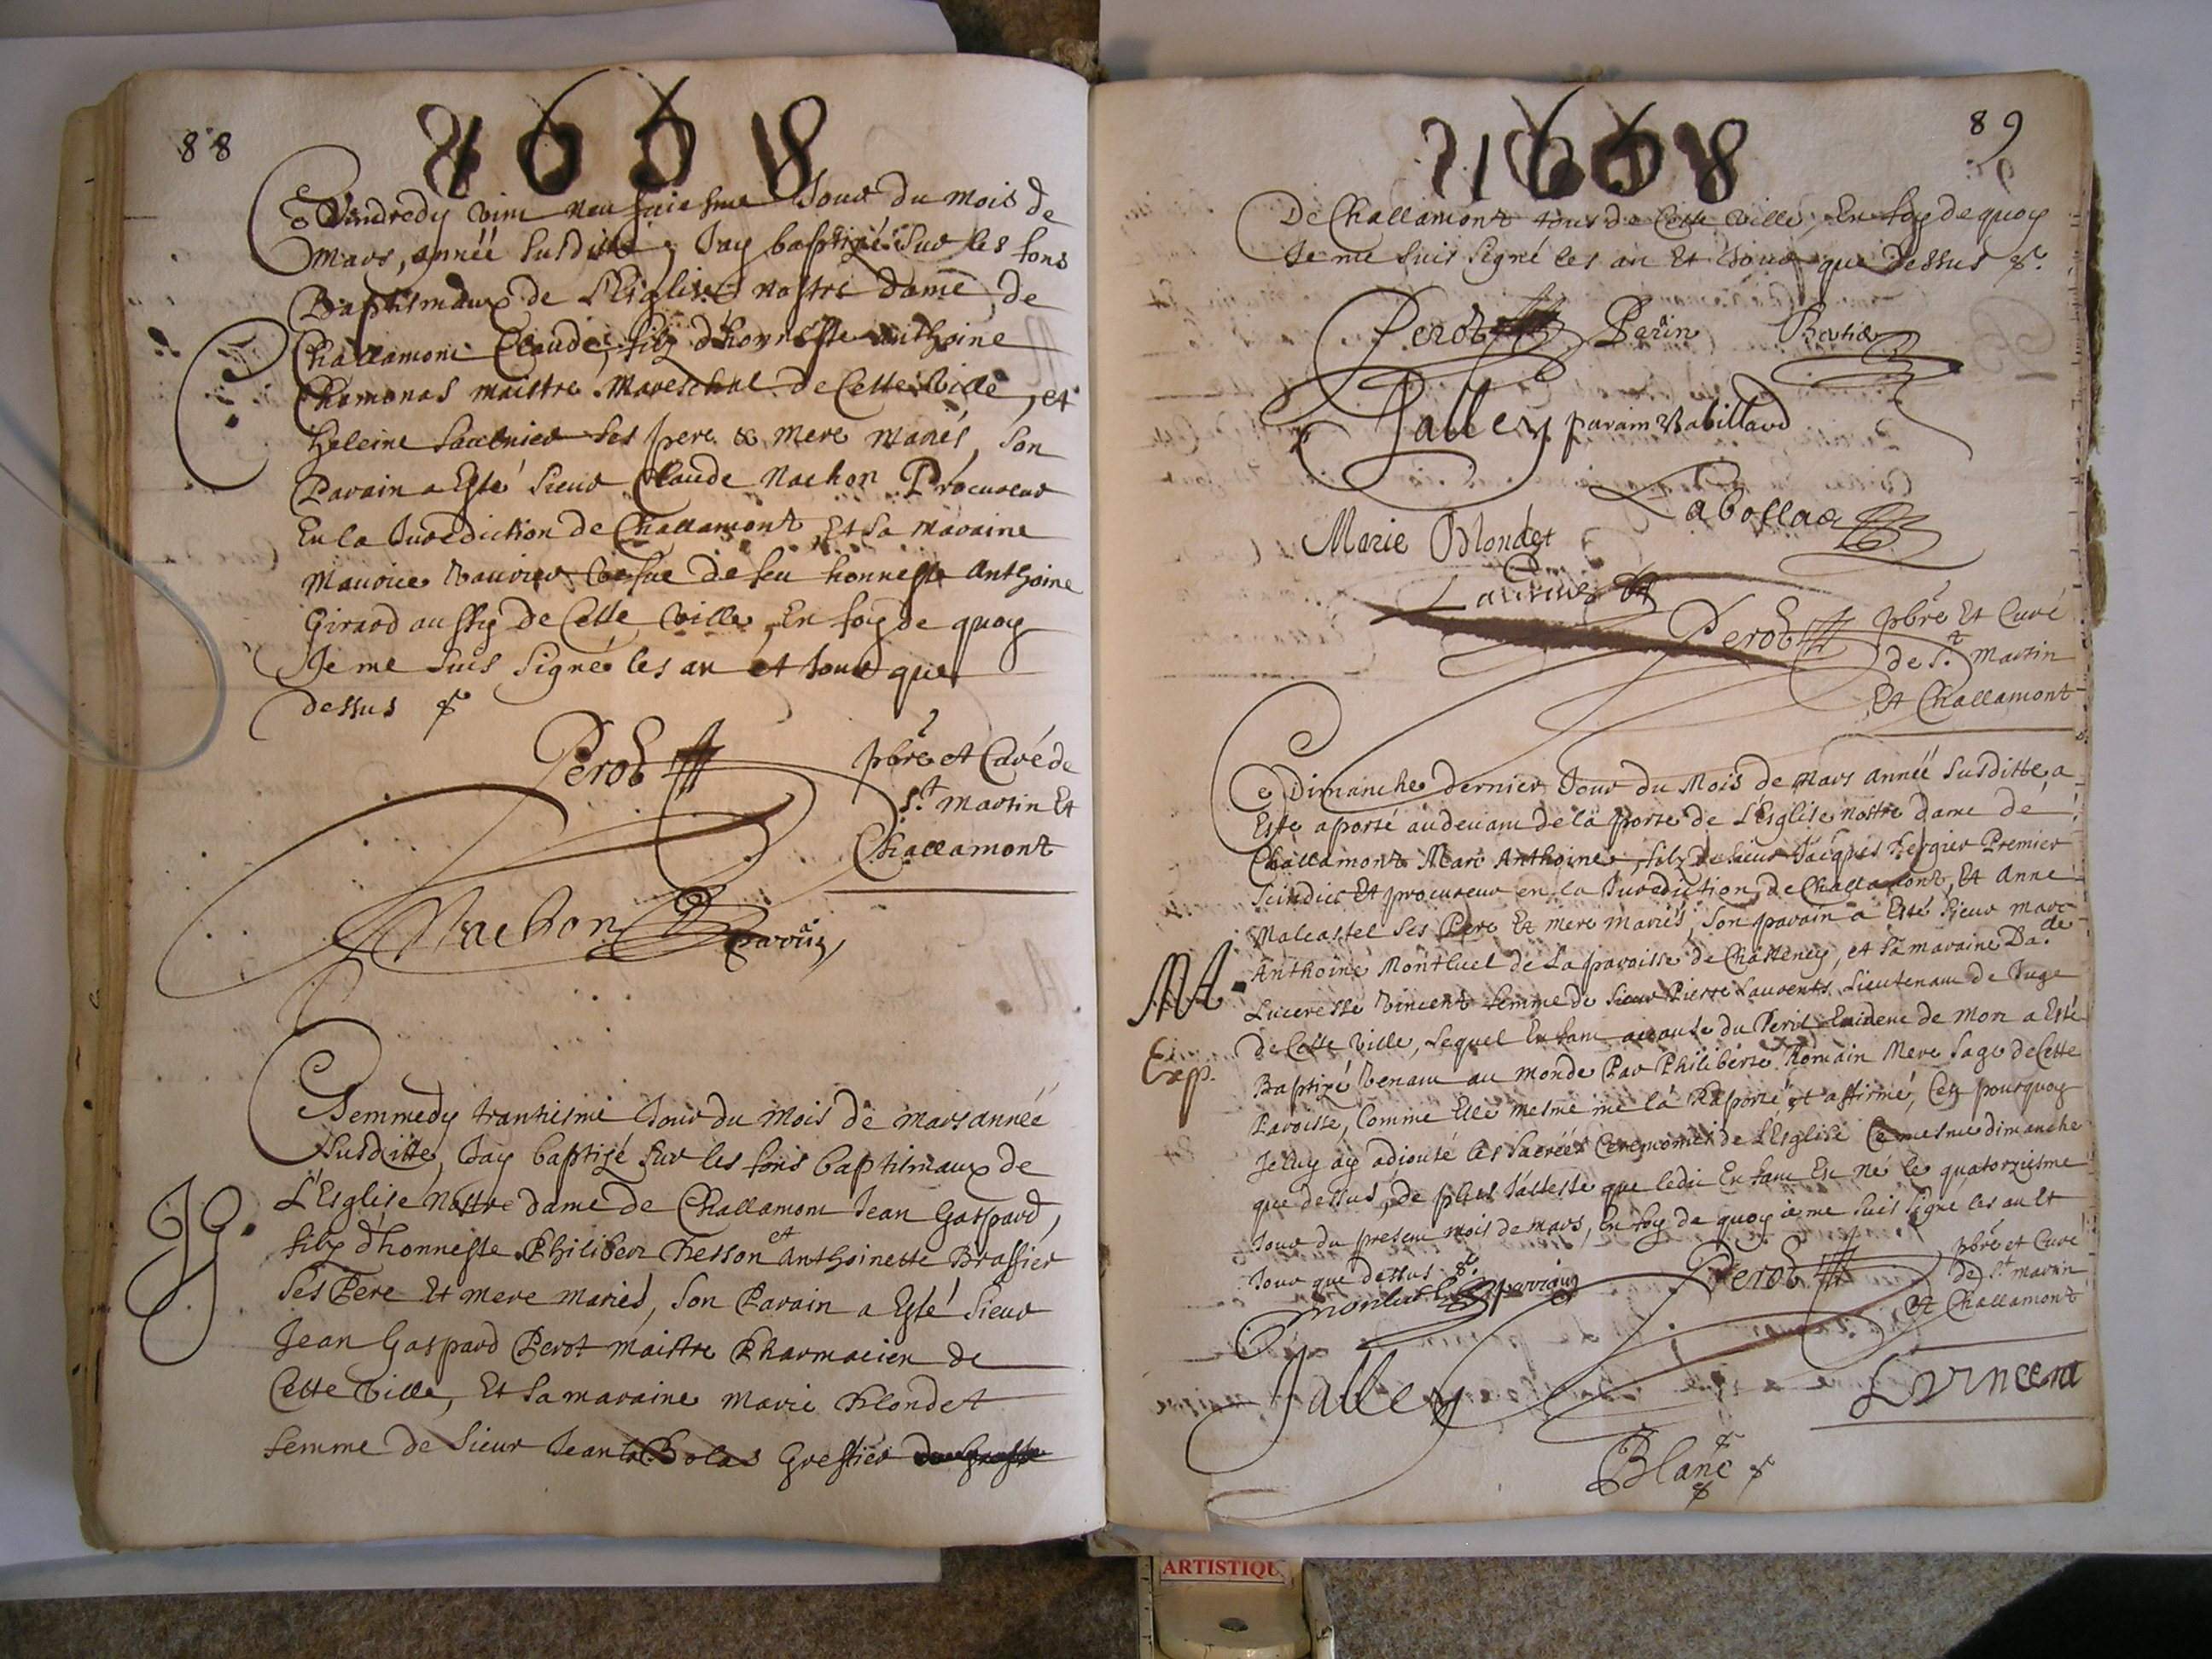 88
1668
Ce Vandredy vint neufuiesme Jour du mois de
Mars, année susditte, Jay baptizé sur les fons
Baptismaux de L'Esglise nostre dame de
Challamont Claude, filz d'honneste Anthoine
Chamonas maistre Mareschal de Cette Ville, et
C.
heleine Saulnier ses pere & mere mariés, Son
Parain a Esté Sieur Claude Nachon Procureur
En la Jurediction de Challamont, Et Sa maraine
Maurice Vaurier Vefue de feu honneste Anthoine
Girard aussy de Cette Ville, En foy de quoy
Je me suis signé les an et Jour que
dessus
Perot
pbre et Curé de
St. Martin Et
Challamont
Nachon parain
Ce Semmedy trantiesme Jour du mois de mars année
Susditte, Jay baptizé sur les fons baptismaux de
L'Esglise Nostre dame de Challamont Jean Gaspard,
JG.
filz d'honneste Philibert Besson et Anthoinette Brassier
Ses Pere Et mere mariés, Son Parain a Esté Sieur
Jean Gaspard Perot maistre Pharmacien de
Cette Ville, Et Sa maraine Marie Blondet
femme de Sieur Jean la Bolas Greffier
89
1668
De Challamont tous de Cette Ville, En foy de quoy
Je me suis signé les an Et Jour que dessus
Perot Perin
Jalley parain Rabillard
Marie Blondet
Perot pbre Et Curé
de St. Martin
Et Challamont
Ce Dimanche dernier Jour du Mois de Mars année susditte, a
Esté aporté audeuant de la porte de L'Esglise nostre dame de
Challamont Marc Anthoine, filz de Sieur Jacques Fergier Premier
Scindicc Et procureur en la Jurediction de Challamont, Et Anne
Malcastel Ses Pere Et mere mariés, Son parain a Esté Sieur marc
MA.
Anthoine Montluel de La paroisse de Chasteney, et Sa maraine Da.de
Luceresse Vincent femme de Sieur Pierre Laurents Lieutenant de Juge
de Cette Ville, Lequel Enfant acause du Peril Euident de Mort a Esté
Exp.
Baptizé Venant au monde Par Philiberte Romain Mere Sage de Cette
Paroisse, Comme Elle mesme me la Raporté et affirmé, Cest pourquoy
Je luy ay adiouté les Sacrées Ceremonies de L'Esglise Ce mesme dimanche
que dessus, de plus J'atteste que ledit Enfant Est Né le quatorziesme
Jour du present mois de mars, En foy de quoy ie me suis signé les an Et
Jour que dessus
Montluel parrain
Perot pbre et Curé
de St. martin
et Challamont
Jalley
L Vincent
Blanc
ARTISTIQU